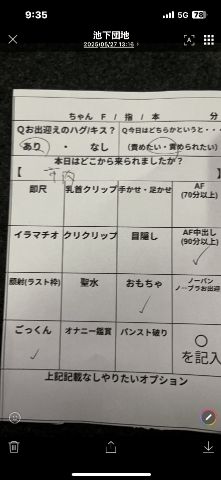 9:35
5G 78
池下団地
2025/05/27 13:16
ちゃん F / 指 / 本 分
Qお出迎えのハグ/キス? Q今日はどちらかというと・・・
あり ・ なし (責めたい・責められたい)
本日はどこから来られましたか?
【
即尺 乳首クリップ 手かせ・足かせ AF
(70分以上)
イラマチオ クリクリップ 目隠し AF中出し
(90分以上)
顔射(ラスト枠) 聖水 おもちゃ ノーパン
ノーブラお出迎
ごっくん オナニー鑑賞 パンスト破り ○
を記入
上記記載なしやりたいオプション